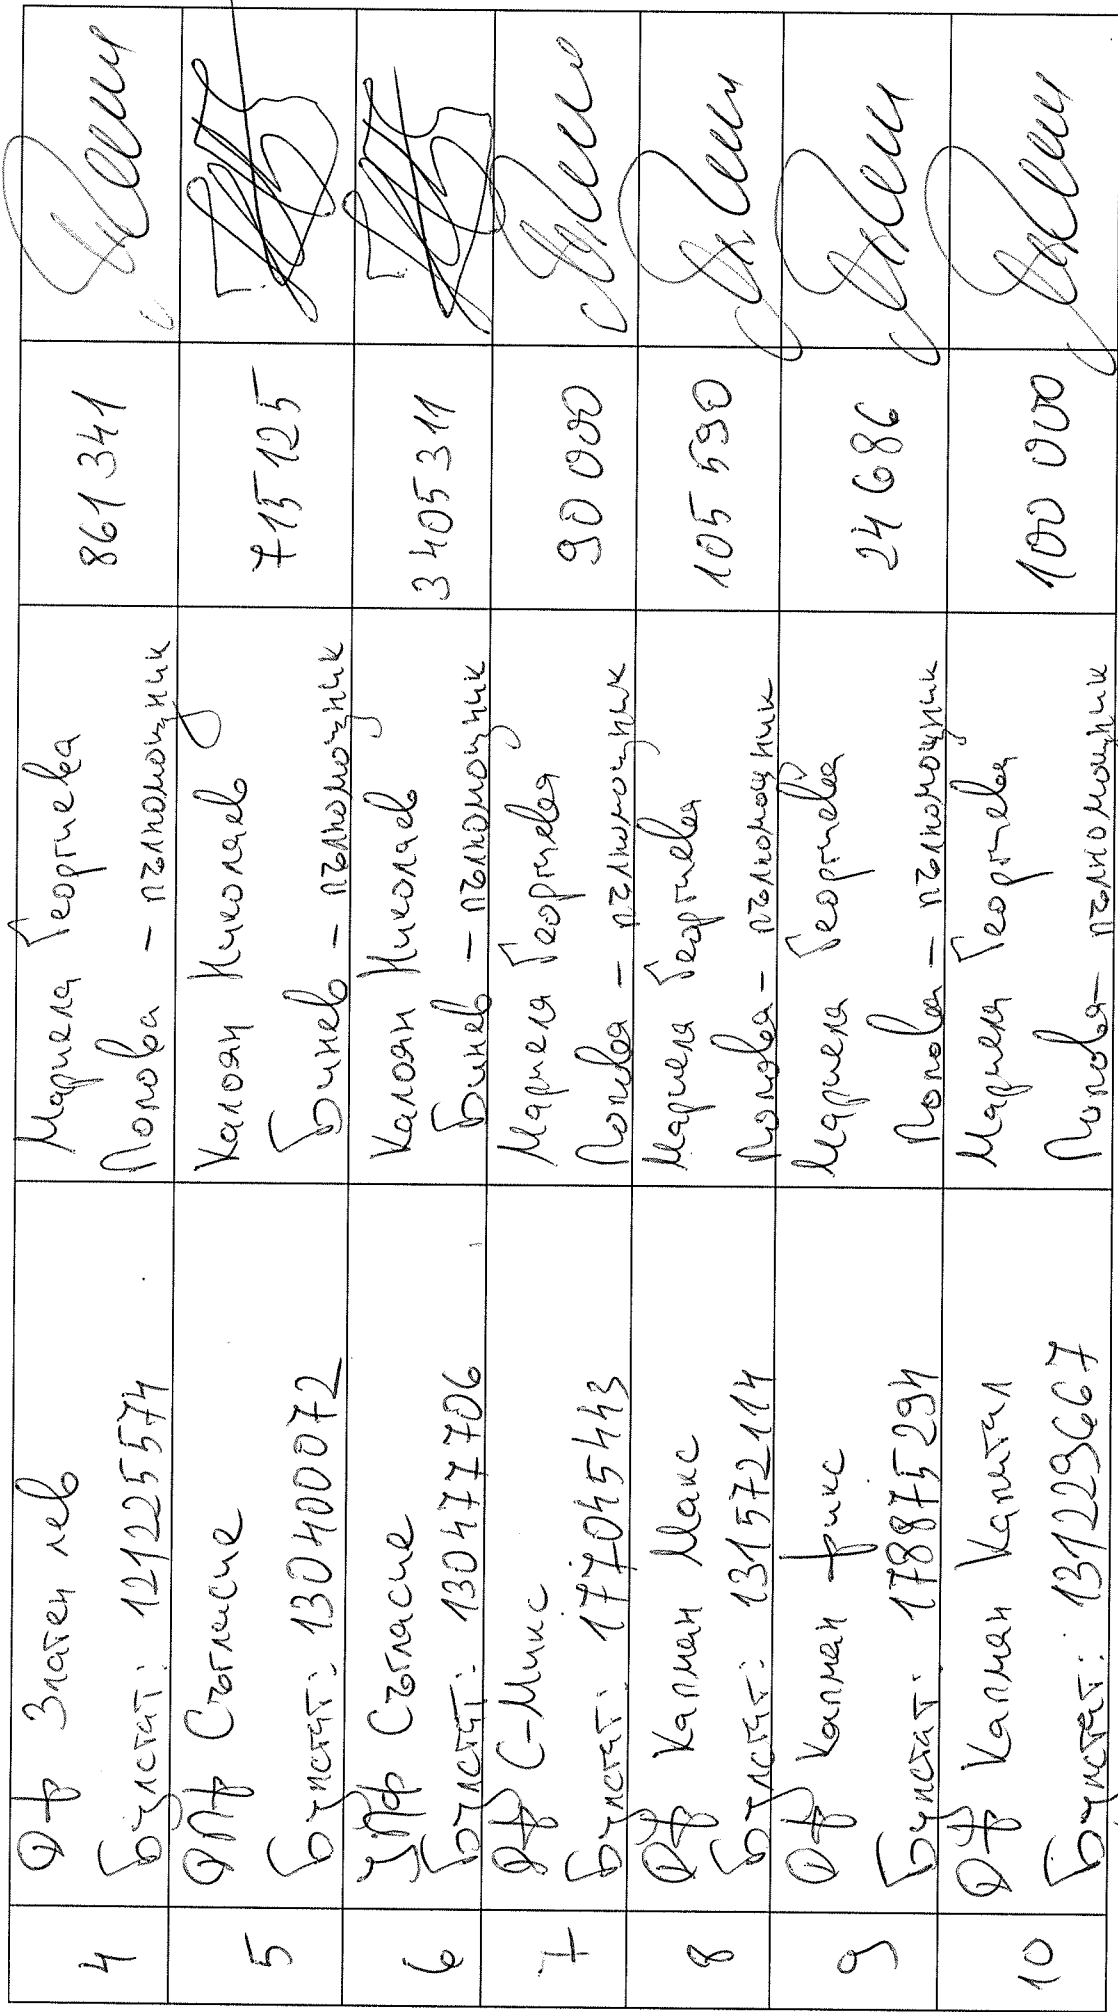 4
ДФ Златен лев
Булстат: 121225574
Мариела Георгиева
Попова - пълномощник
861 341
5
ДПФ Съгласие
Булстат: 130400072
Калоян Николаев
Бинев - пълномощник
715 125
6
УПФ Съгласие
Булстат: 130477706
Калоян Николаев
Бинев - пълномощник
3 405 311
7
ДФ С-Микс
Булстат: 177045443
Мариела Георгиева
Попова - пълномощник
90 000
8
ДФ Капман Макс
Булстат: 131572114
Мариела Георгиева
Попова - пълномощник
105 590
9
ДФ Капман Фикс
Булстат: 178875294
Мариела Георгиева
Попова - пълномощник
24 686
10
ДФ Капман Капитал
Булстат: 131229667
Мариела Георгиева
Попова - пълномощник
100 000